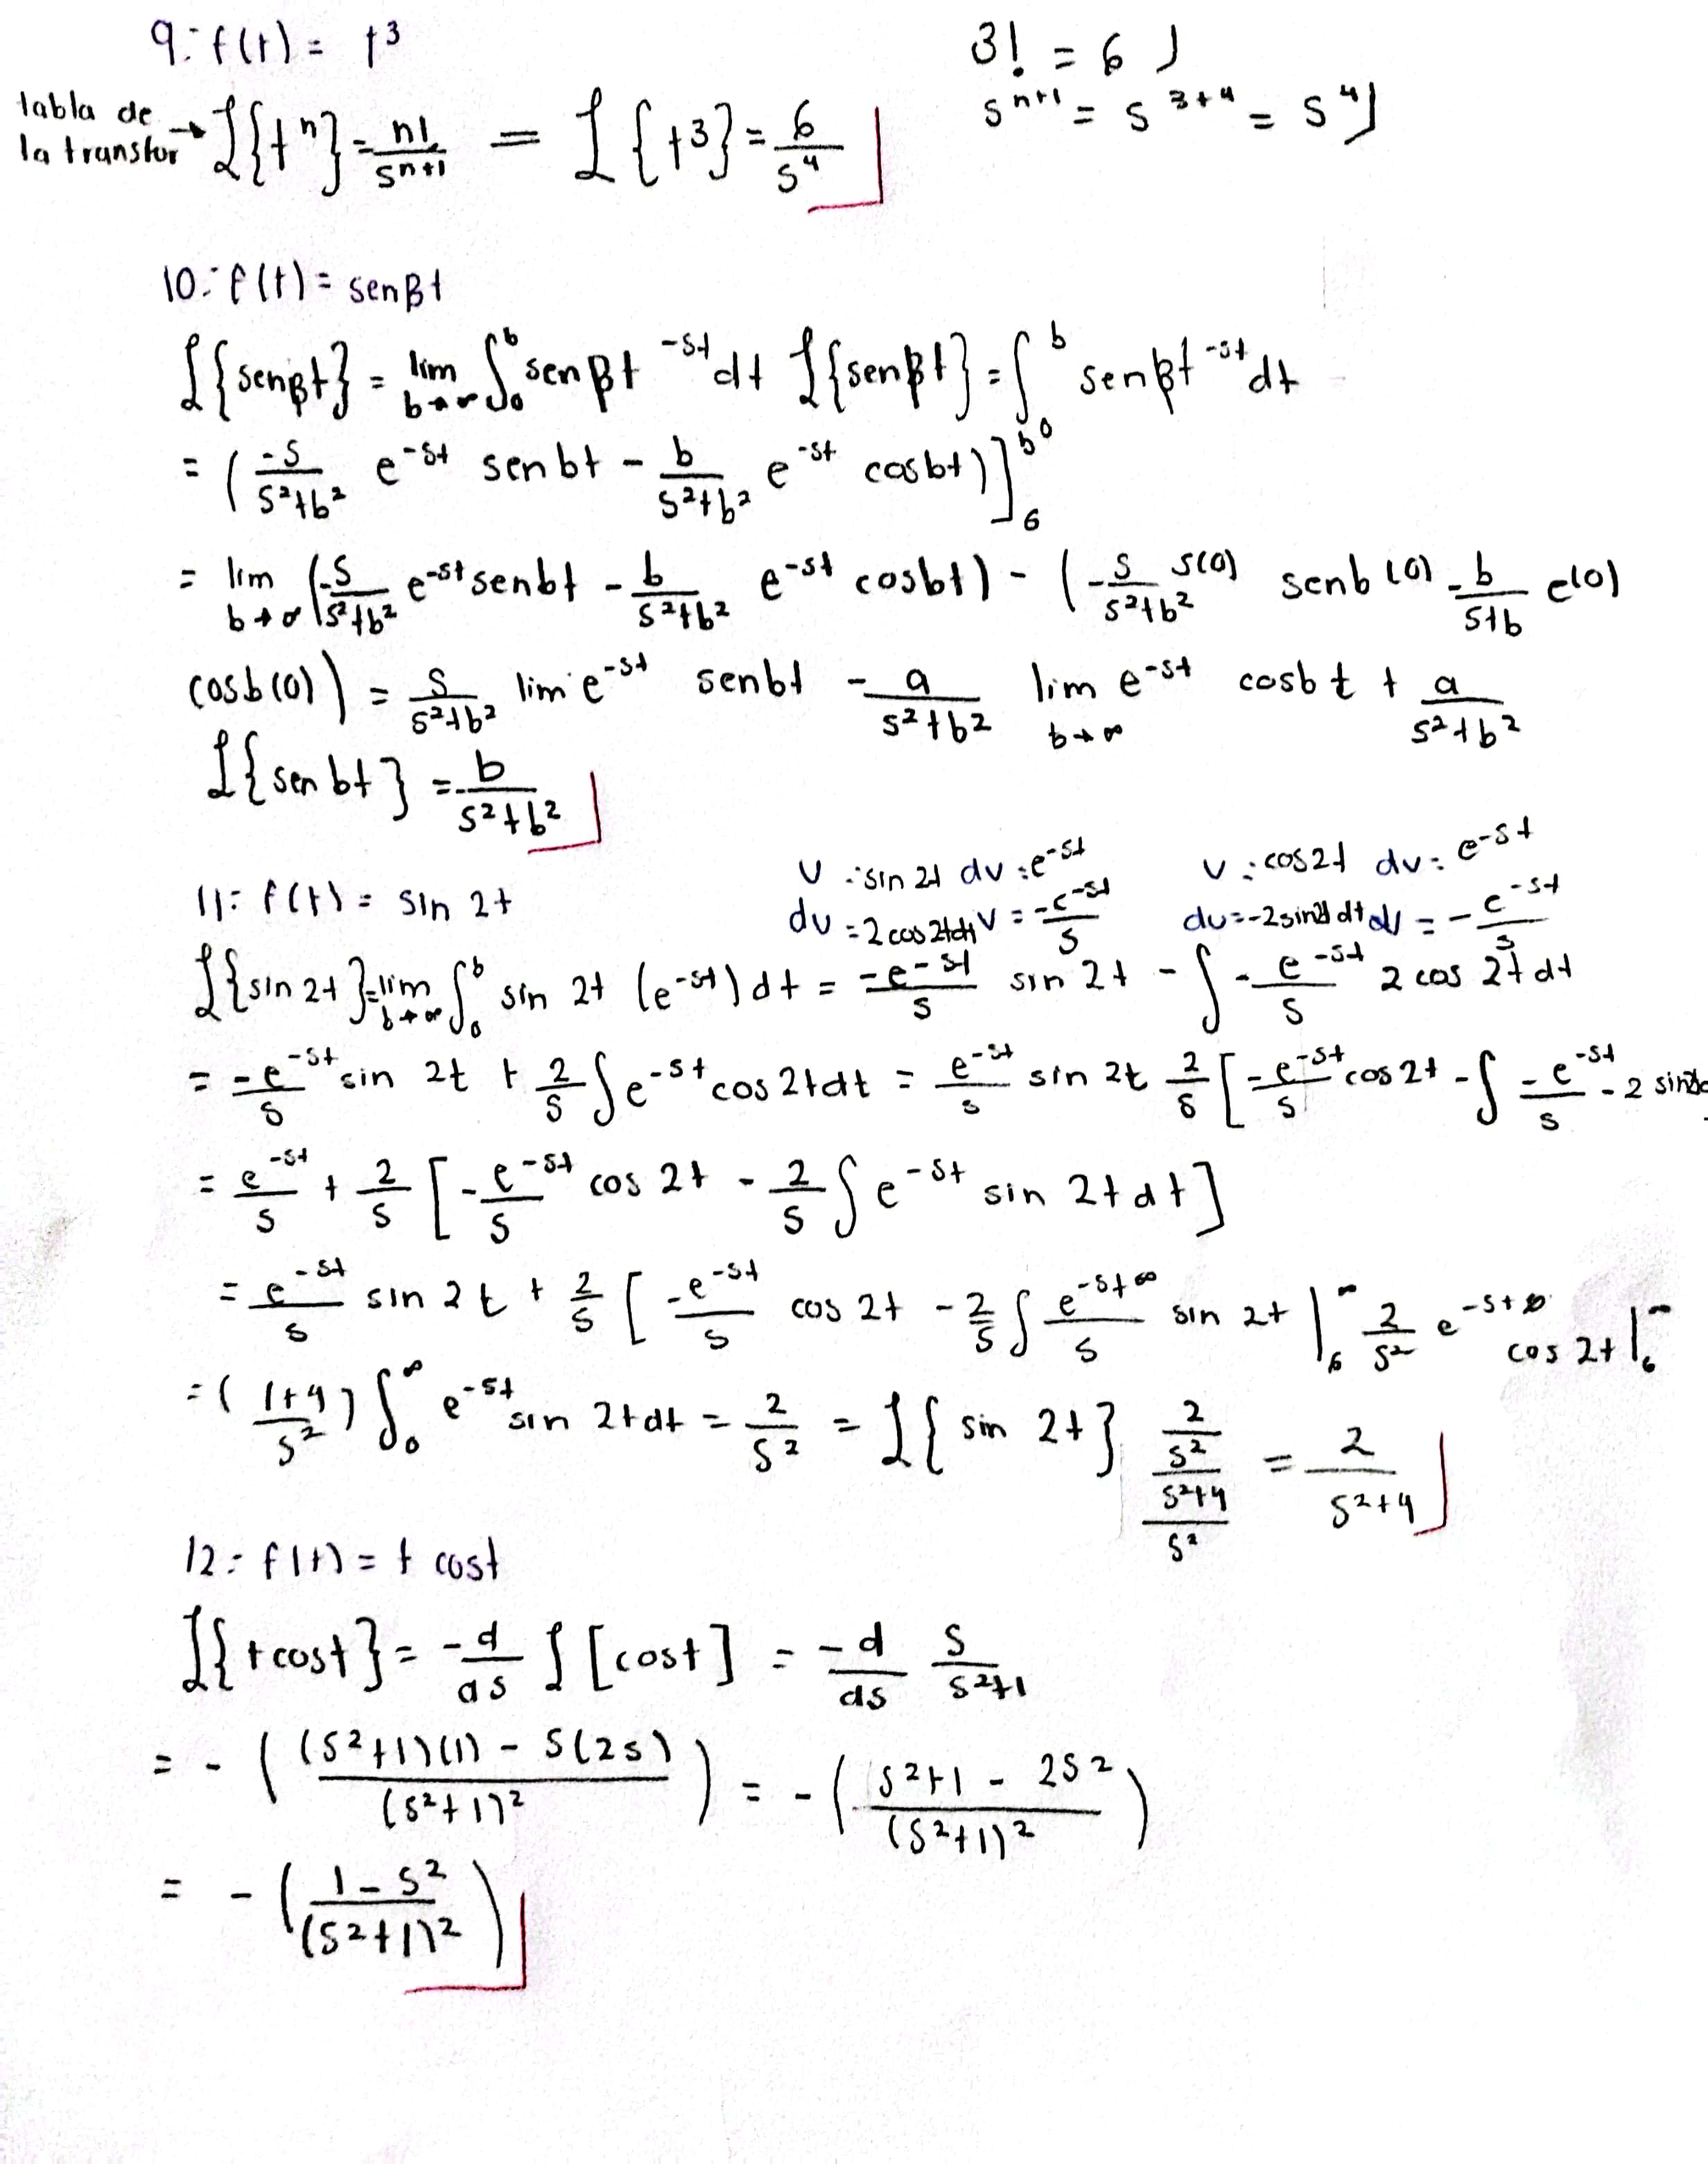 9.- f(t) = t³
3! = 6
tabla de la transfor → ℒ{t^n} = n!/s^(n+1) = ℒ{t³} = 6/s⁴
s^(n+1) = s^(3+4) = s⁴
10.- f(t) = senβt
ℒ{senβt} = lim b→∞ ∫₀^b senβt ^(-st) dt ℒ{senβt} = ∫₀^b senβt ^(-st) dt
= (-s/(s²+b²) e^(-st) sen bt - b/(s²+b²) e^(-st) cosbt)]
= lim b→∞ (-s/(s²+b²) e^(-st) senbt - b/(s²+b²) e^(-st) cosbt) - (-s/(s²+b²) ^(s(0)) senb(0) - b/(s+b) e(0)
cosb(0)) = s/(s²+b²) lim e^(-st) senbt - a/(s²+b²) lim b→∞ e^(-st) cosbt + a/(s²+b²)
ℒ{sen bt} = b/(s²+b²)
11.- f(t) = sin 2t
U = sin 2t dv = e^(-st)
du = 2cos2tdt v = -e^(-st)/s
U = cos2t dv = e^(-st)
du = -2sin2t dt = -e^(-st)/s
ℒ{sin 2t} = lim b→∞ ∫₀^b sin 2t (e^(-st)) dt = -e^(-st)/s sin 2t - ∫ -e^(-st)/s 2 cos 2t dt
= -e^(-st)/s sin 2t + 2/s ∫ e^(-st) cos 2t dt = e^(-st)/s sin 2t 2/s [-e^(-st)/s cos 2t - ∫ -e^(-st)/s - 2
= e^(-st)/s + 2/s [-e^(-st)/s cos 2t - 2/s ∫ e^(-st) sin 2t dt]
= e^(-st)/s sin 2t + 2/s [-e^(-st)/s cos 2t - 2/s ∫ e^(-st∞)/s sin 2t | 2/s² e^(-st) cos 2t |
= ((1+4)/s²) ∫₀^∞ e^(-st) sin 2t dt = 2/s² = ℒ{sin 2t} (2/s²)/((s²+4)/s²) = 2/(s²+4)
12.- f(t) = t cost
ℒ{t cost} = -d/ds ℒ[cost] = -d/ds s/(s²+1)
= - (((s²+1)(1) - s(2s))/(s²+1)²) = - ((s²+1 - 2s²)/(s²+1)²)
= - ((1-s²)/(s²+1)²)